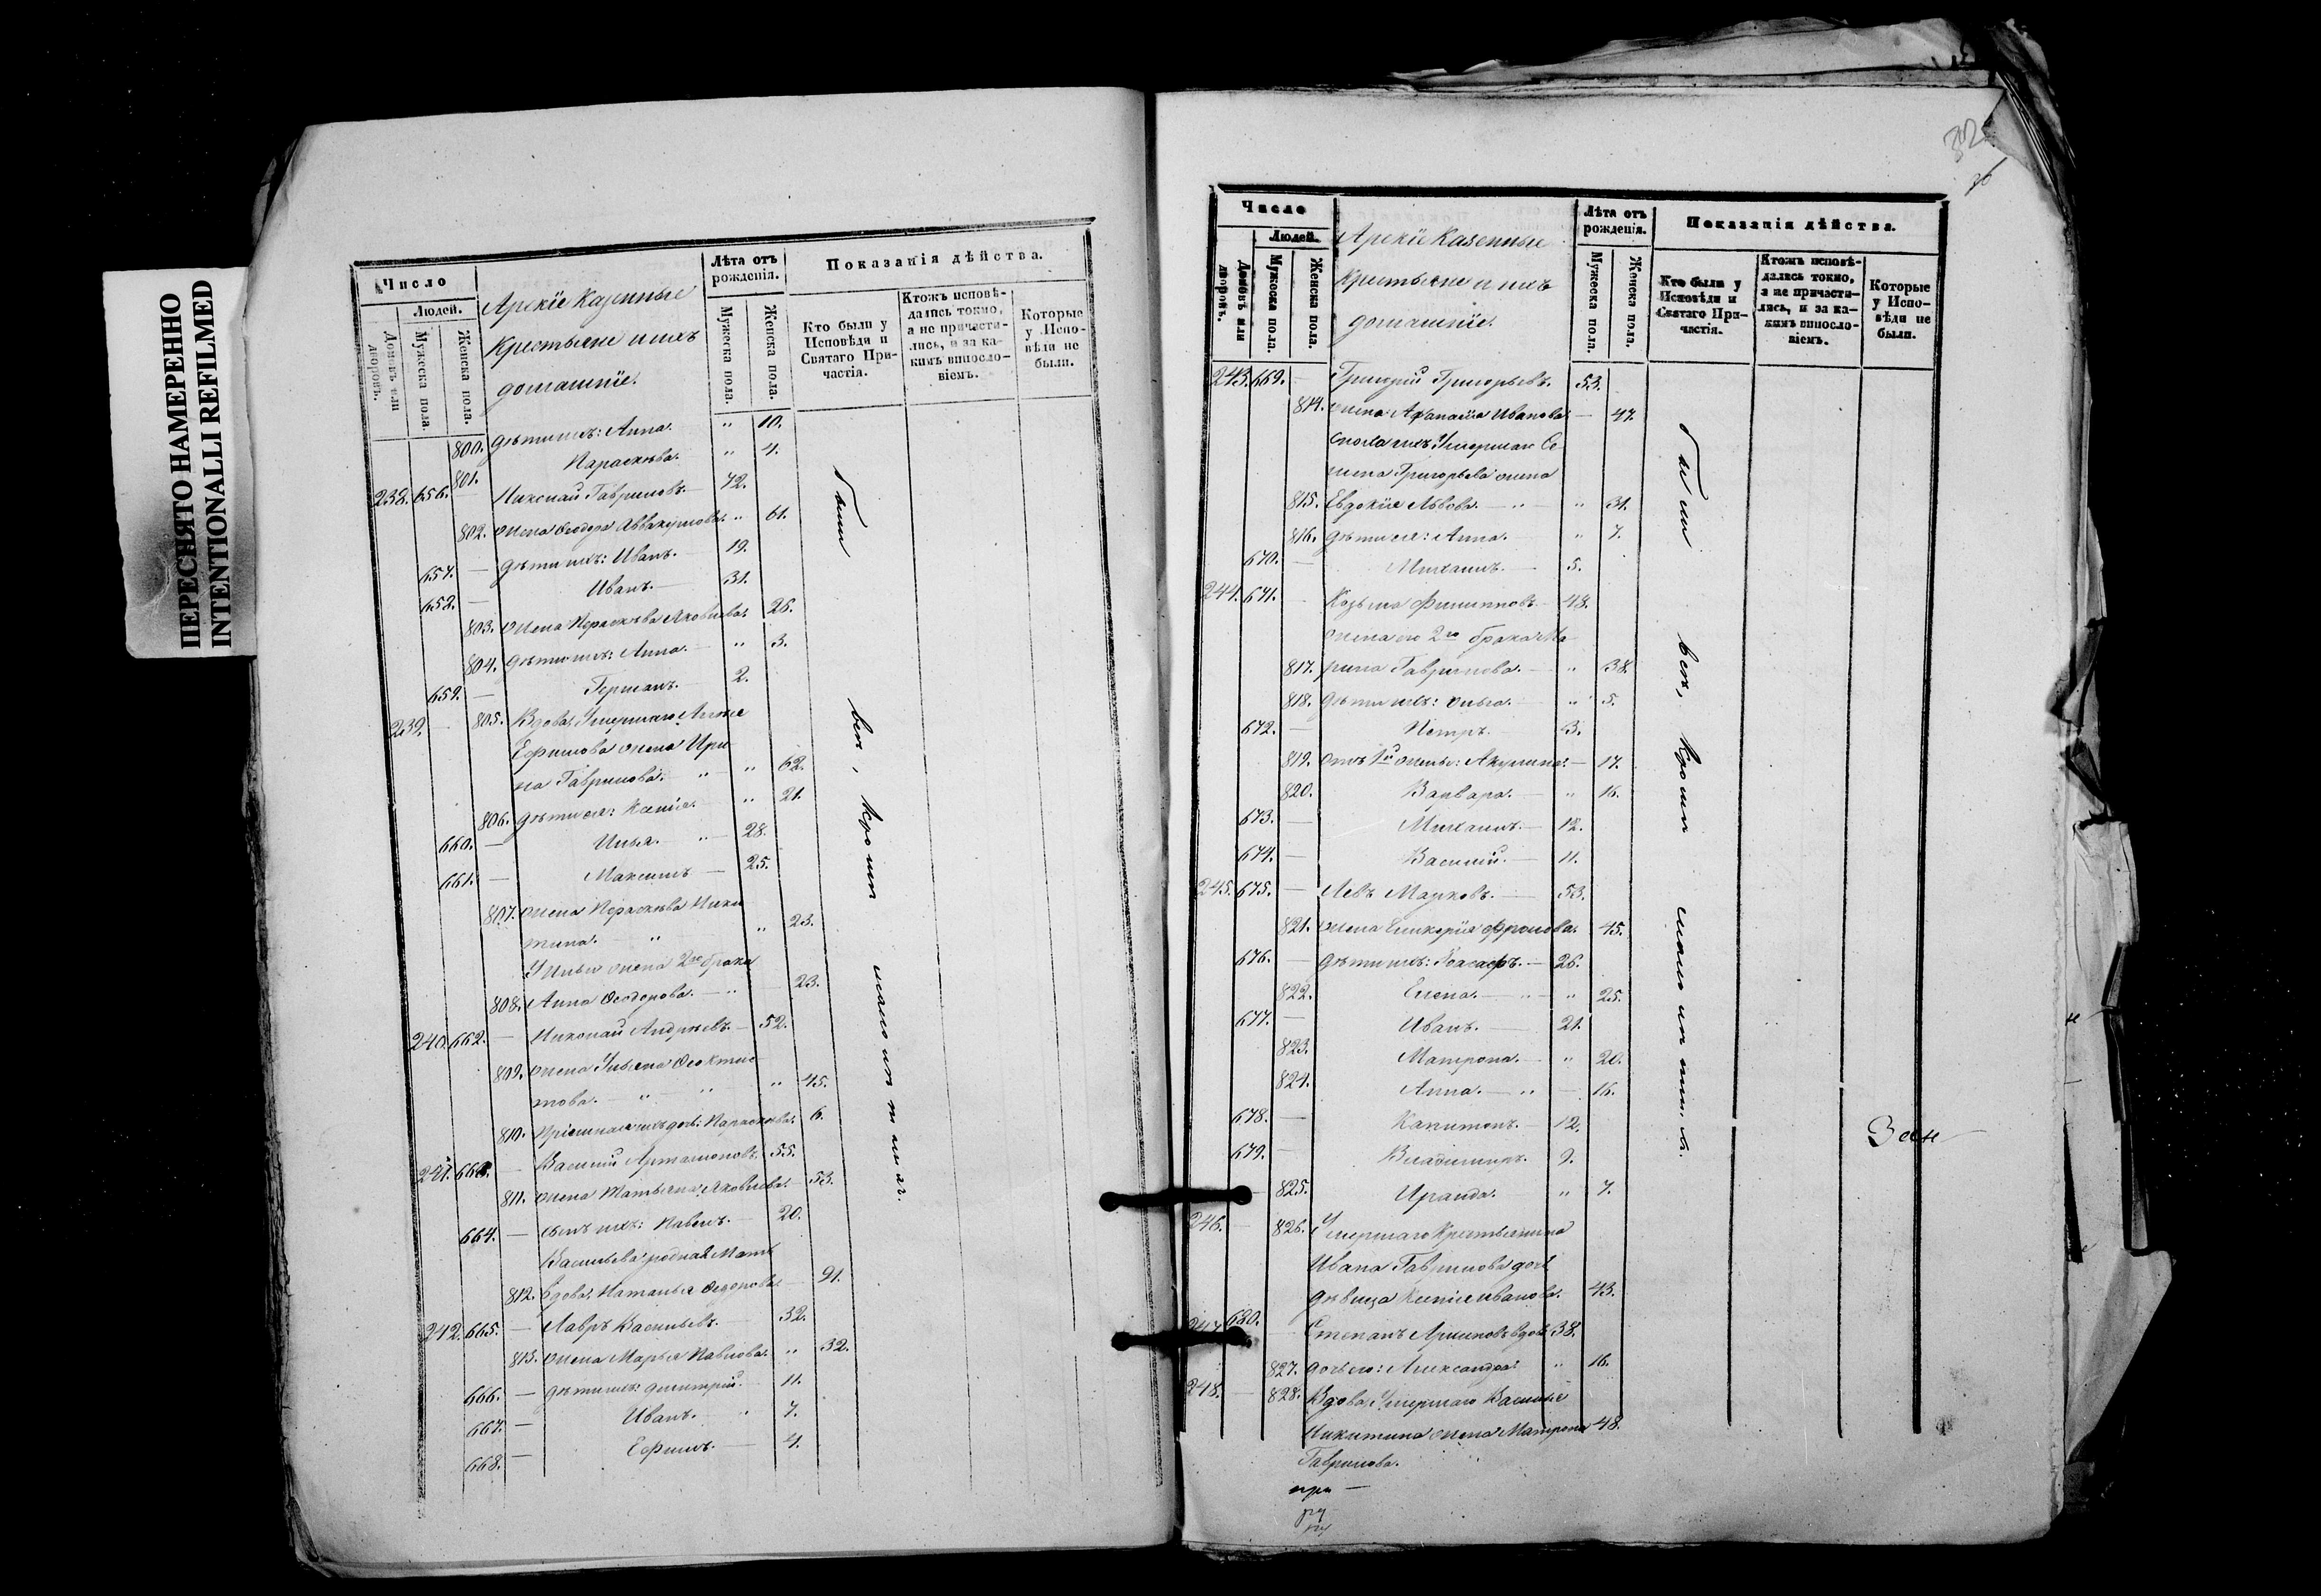 ПЕРЕСНЯТО НАМЕРЕННО
INTENTIONALLI REFILMED
Число
Людей.
Домовъ или дворовъ.
Мужеска пола.
Женска пола.
Арскіе Казенные
Крестьяне и ихъ
домашніе.
Лѣта отъ рожденія.
Мужеска пола.
Женска пола.
Показанія дѣйства.
Кто были у Исповѣди и Святаго Причастія.
Ктожъ исповѣдались токмо, а не причастились, и за какимъ винословіемъ.
Которые у Исповѣди не были.
800. дѣти ихъ: Анна. " 10.
801. Параскева. " 4.
238. 656. — Николай Гавриловъ — 72.
802. жена Ѳеодора Аввакумова. " 61.
657. — дѣти ихъ: Иванъ. — 19.
658. — Иванъ. — 31.
803. жена Параскева Яковлева. 26.
804. дѣти ихъ: Анна. — " 3.
659. — Германъ. — 2.
239. — 805. Вдова, Умершаго
Ефимова жена Ири-
на Гаврилова. " " 62.
806. дѣти ея: Ксенія. " 21.
660. — Илья. " 28.
661. — Максимъ — 25.
807. жена Параскева Ники-
тина. " " 23.
У Ильи жена 2го брака
808. Анна Ѳеодорова. — " 23.
240. 662. — Николай Андреевъ. — 52.
809. жена Ульяна Ѳеоктис-
това. — " " " 45.
810. Пріемная ихъ дочь: Параскева. 6.
241. 663. — Василій Артамоновъ. 55.
811. жена Татьяна Яковлева. — 53.
664. — сынъ ихъ: Павелъ. — 20.
Васильева родная Мать
812. Вдова, Наталья Ѳедорова. — 91.
242. 665. — Лавръ Васильевъ. 32.
813. жена Марья Павлова. " 32.
666. — дѣти ихъ: Димитрій. — 11.
667. — Иванъ. " 7.
668. — Ефимъ. — 4.
были всѣ, кромѣ малолѣтныхъ.
Число
Людей.
Домовъ или дворовъ.
Мужеска пола.
Женска пола.
Арскіе Казенные
Крестьяне и ихъ
домашніе.
Лѣта отъ рожденія.
Мужеска пола.
Женска пола.
Показанія дѣйства.
Кто были у Исповѣди и Святаго Причастія.
Ктожъ исповѣдались токмо, а не причастились, и за какимъ винословіемъ.
Которые у Исповѣди не были.
243. 669. — Григорій Григорьевъ. 53.
814. жена Афанасія Иванова. — 47.
Сноха ихъ, Умершаго Се-
мена Григорьева жена
815. Евдокія Львова. — " " 31.
816. дѣти ея: Анна. " 7.
670. — Михаилъ. — 5.
244. 671. — Козьма Филипповъ. — 48.
жена его 2го брака Ма-
817. рина Гаврилова. — " 38.
818. дѣти ихъ: Ольга. — " 5.
672. — Петръ. 3.
819. отъ 1й жены: Акулина. — 17.
820. Варвара. — " 16.
673. — Михаилъ. — 12.
674. — Василій. — 11.
245. 675. — Левъ Марковъ. — 53.
821. жена Гликерія Фролова. 45.
676. — дѣти ихъ: Іоасафъ. — 26.
822. Елена. — " " 25.
677. — Иванъ. — 21.
823. Матрона. — " 20.
824. Анна. — " — 16.
678. — Капитонъ. — 12.
679. — Владиміръ. 9.
825. Ираида. " 7.
246. — 826. Умершаго Крестьянина
Ивана Гаврилова дочь
дѣвица Ксенія Иванова. 43.
247. 680. — Степанъ вдовъ 38.
827. дочь его: Александра. " 16.
248. — 828. Вдова, Умершаго Василья
Никитина жена Матрона 48.
Гаврилова.
были всѣ, кромѣ малолѣтн.